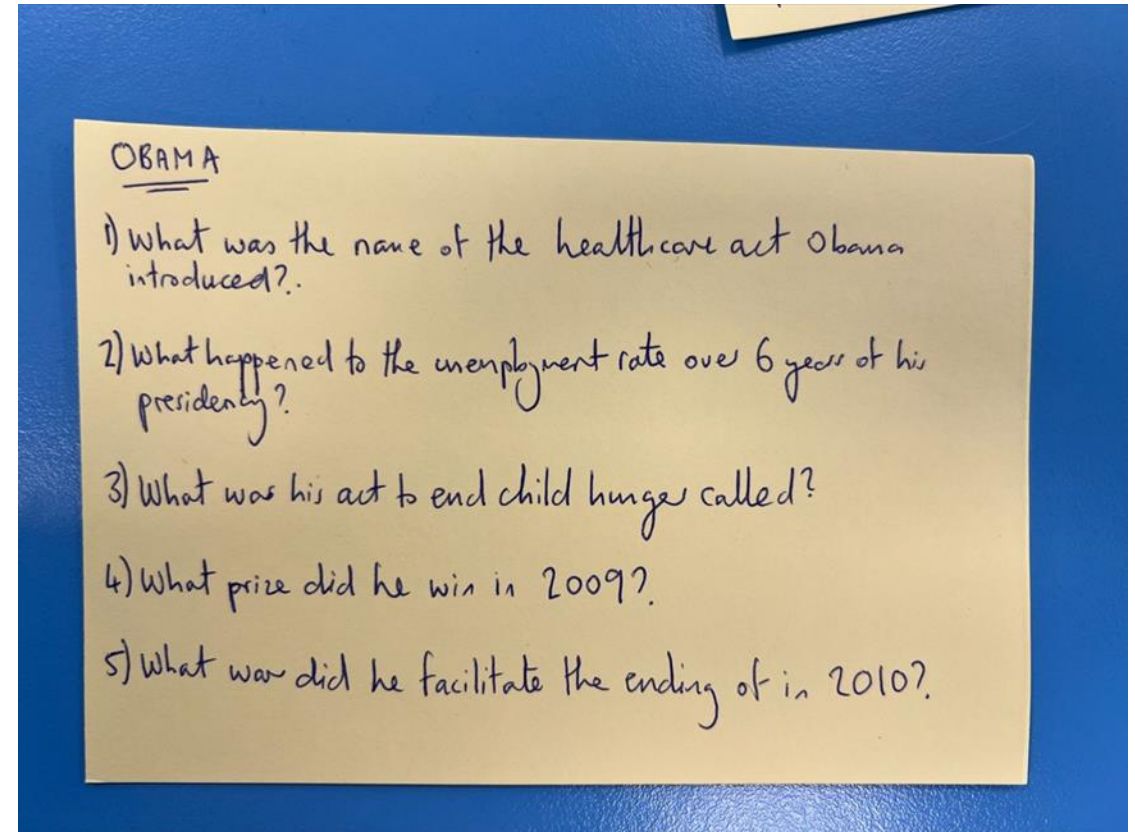 OBAMA
1) What was the name of the healthcare act Obama
introduced?.
2) What happened to the unemployment rate over 6 years of his
presidency?
3) What was his act to end child hunger called?
4) What prize did he win in 2009?
5) What war did he facilitate the ending of in 2010?